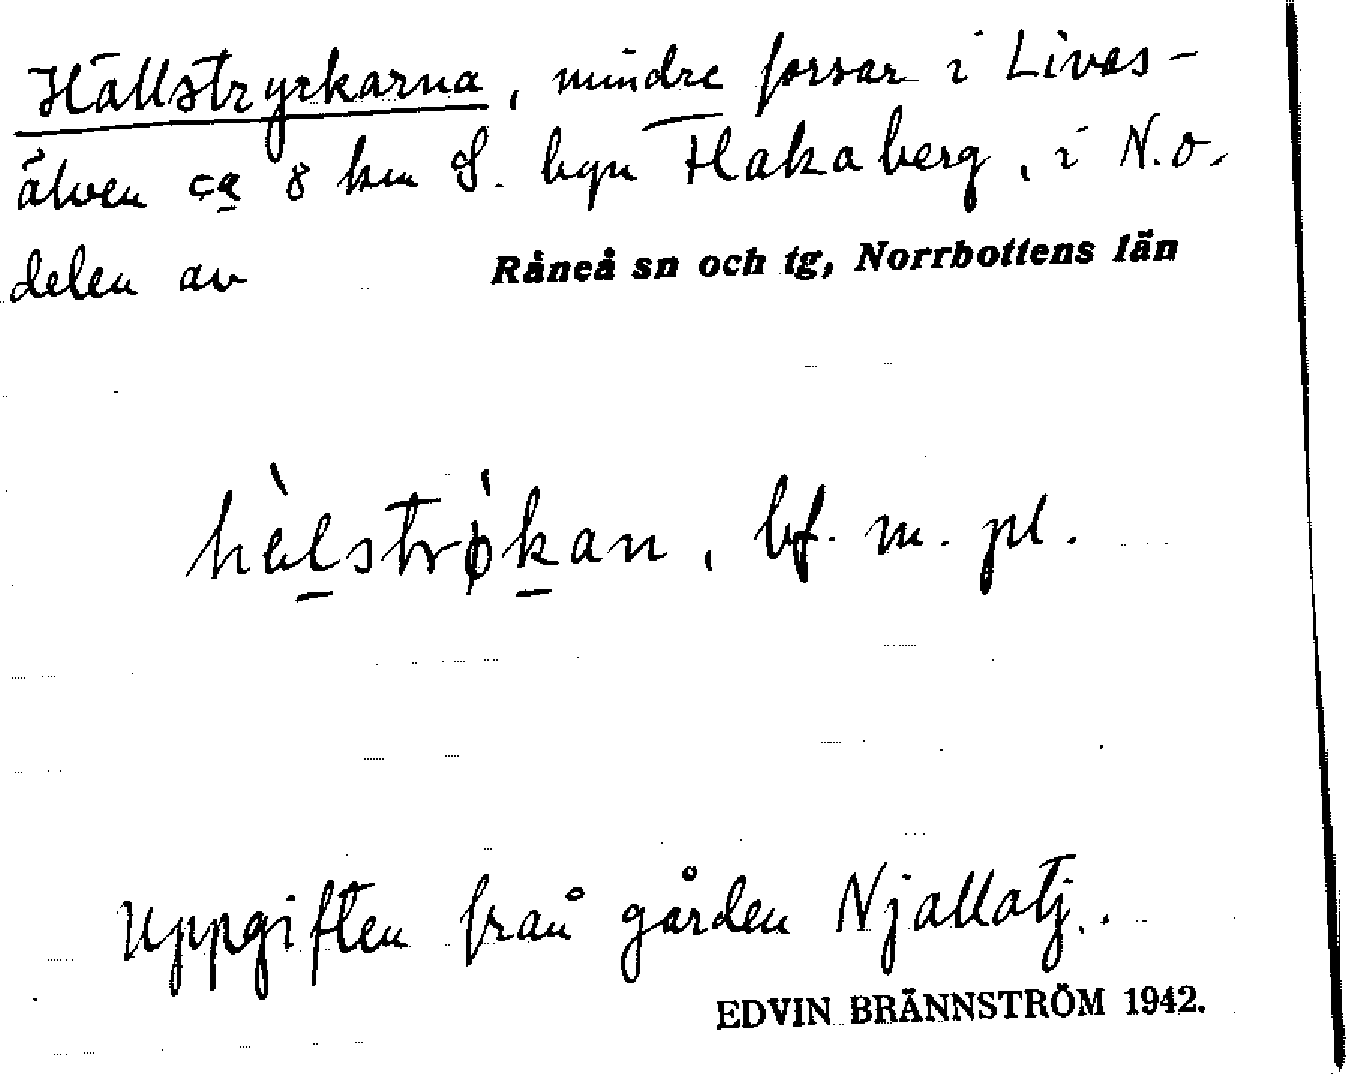 Hällstryrkarna, mindre forsar i Livas-
älven ca 8 km S. byn Hakaberg, i N.O.
delen av Råneå sn och tg, Norrbottens län
hèlstrø̀kan, bf. m. pl.
Uppgiften från gården Njallatj.
EDVIN BRÄNNSTRÖM 1942.